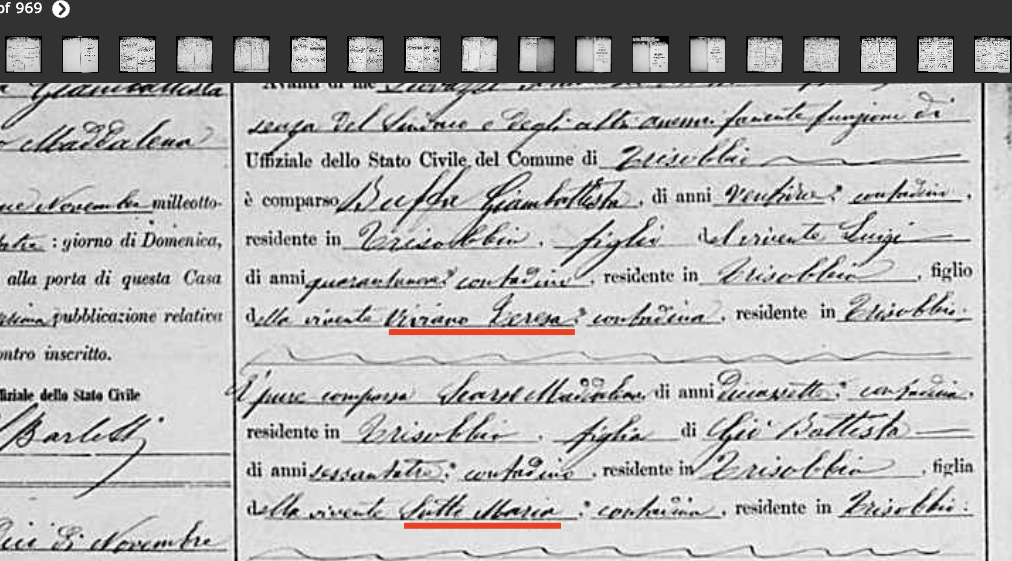 of 969
Giambattista
Maddalena
Novembre milleotto-
: giorno di Domenica,
alla porta di questa Casa
pubblicazione relativa
contro inscritto.
fiziale dello Stato Civile
Barletti
di Novembre
Avanti di me
senza del Sindaco e degli altri facente funzione di
Uffiziale dello Stato Civile del Comune di Trisobbio
è comparso Buffa Giambattista, di anni ventitre: contadino,
residente in Trisobbio, figlio del vivente Luigi
di anni contadino, residente in Trisobbio, figlio
della vivente Viviano Teresa: contadina, residente in Trisobbio:
È pure comparsa Scarsi Maddalena di anni diciassette: contadina,
residente in Trisobbio, figlia di Gio Battista
di anni sessantatre: contadino, residente in Trisobbio, figlia
della vivente Sutto Maria: contadina, residente in Trisobbio: